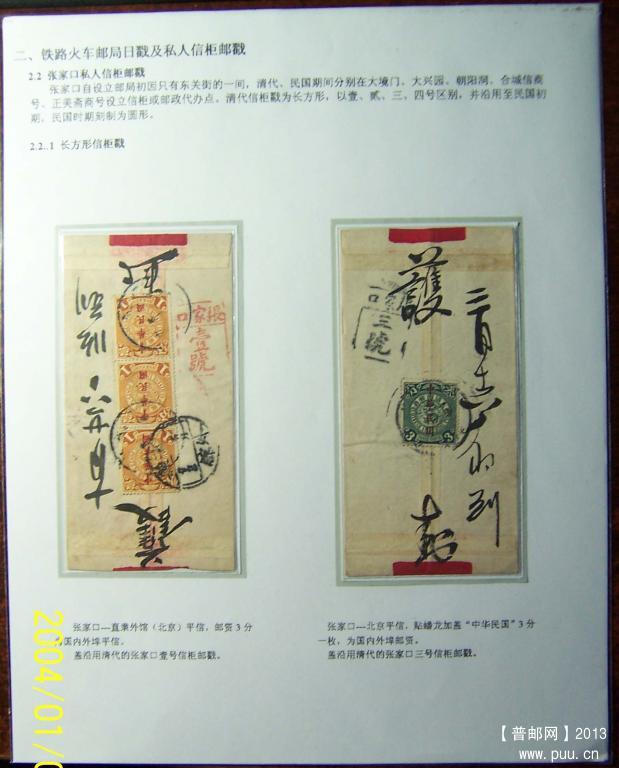 二、铁路火车邮局日戳及私人信柜邮戳
2.2 张家口私人信柜邮戳
张家口自设立邮局初因只有东关街的一间，清代、民国期间分别在大境门、大兴园、朝阳洞、合城信商
号、正美斋商号设立信柜或邮政代办点。清代信柜戳为长方形，以壹、贰、三、四号区别，并沿用至民国初
期。民国时期刻制为圆形。
2.2..1 长方形信柜戳
壹號
三號
護
張家口—直隶外馆（北京）平信，邮资3分
为国内外埠平信。
盖沿用清代的张家口壹号信柜邮戳。
张家口—北京平信，贴蟠龙加盖“中华民国”3分
一枚，为国内外埠邮资。
盖沿用清代的张家口三号信柜邮戳。
2004/01/0
【普邮网】2013
www.puu.cn